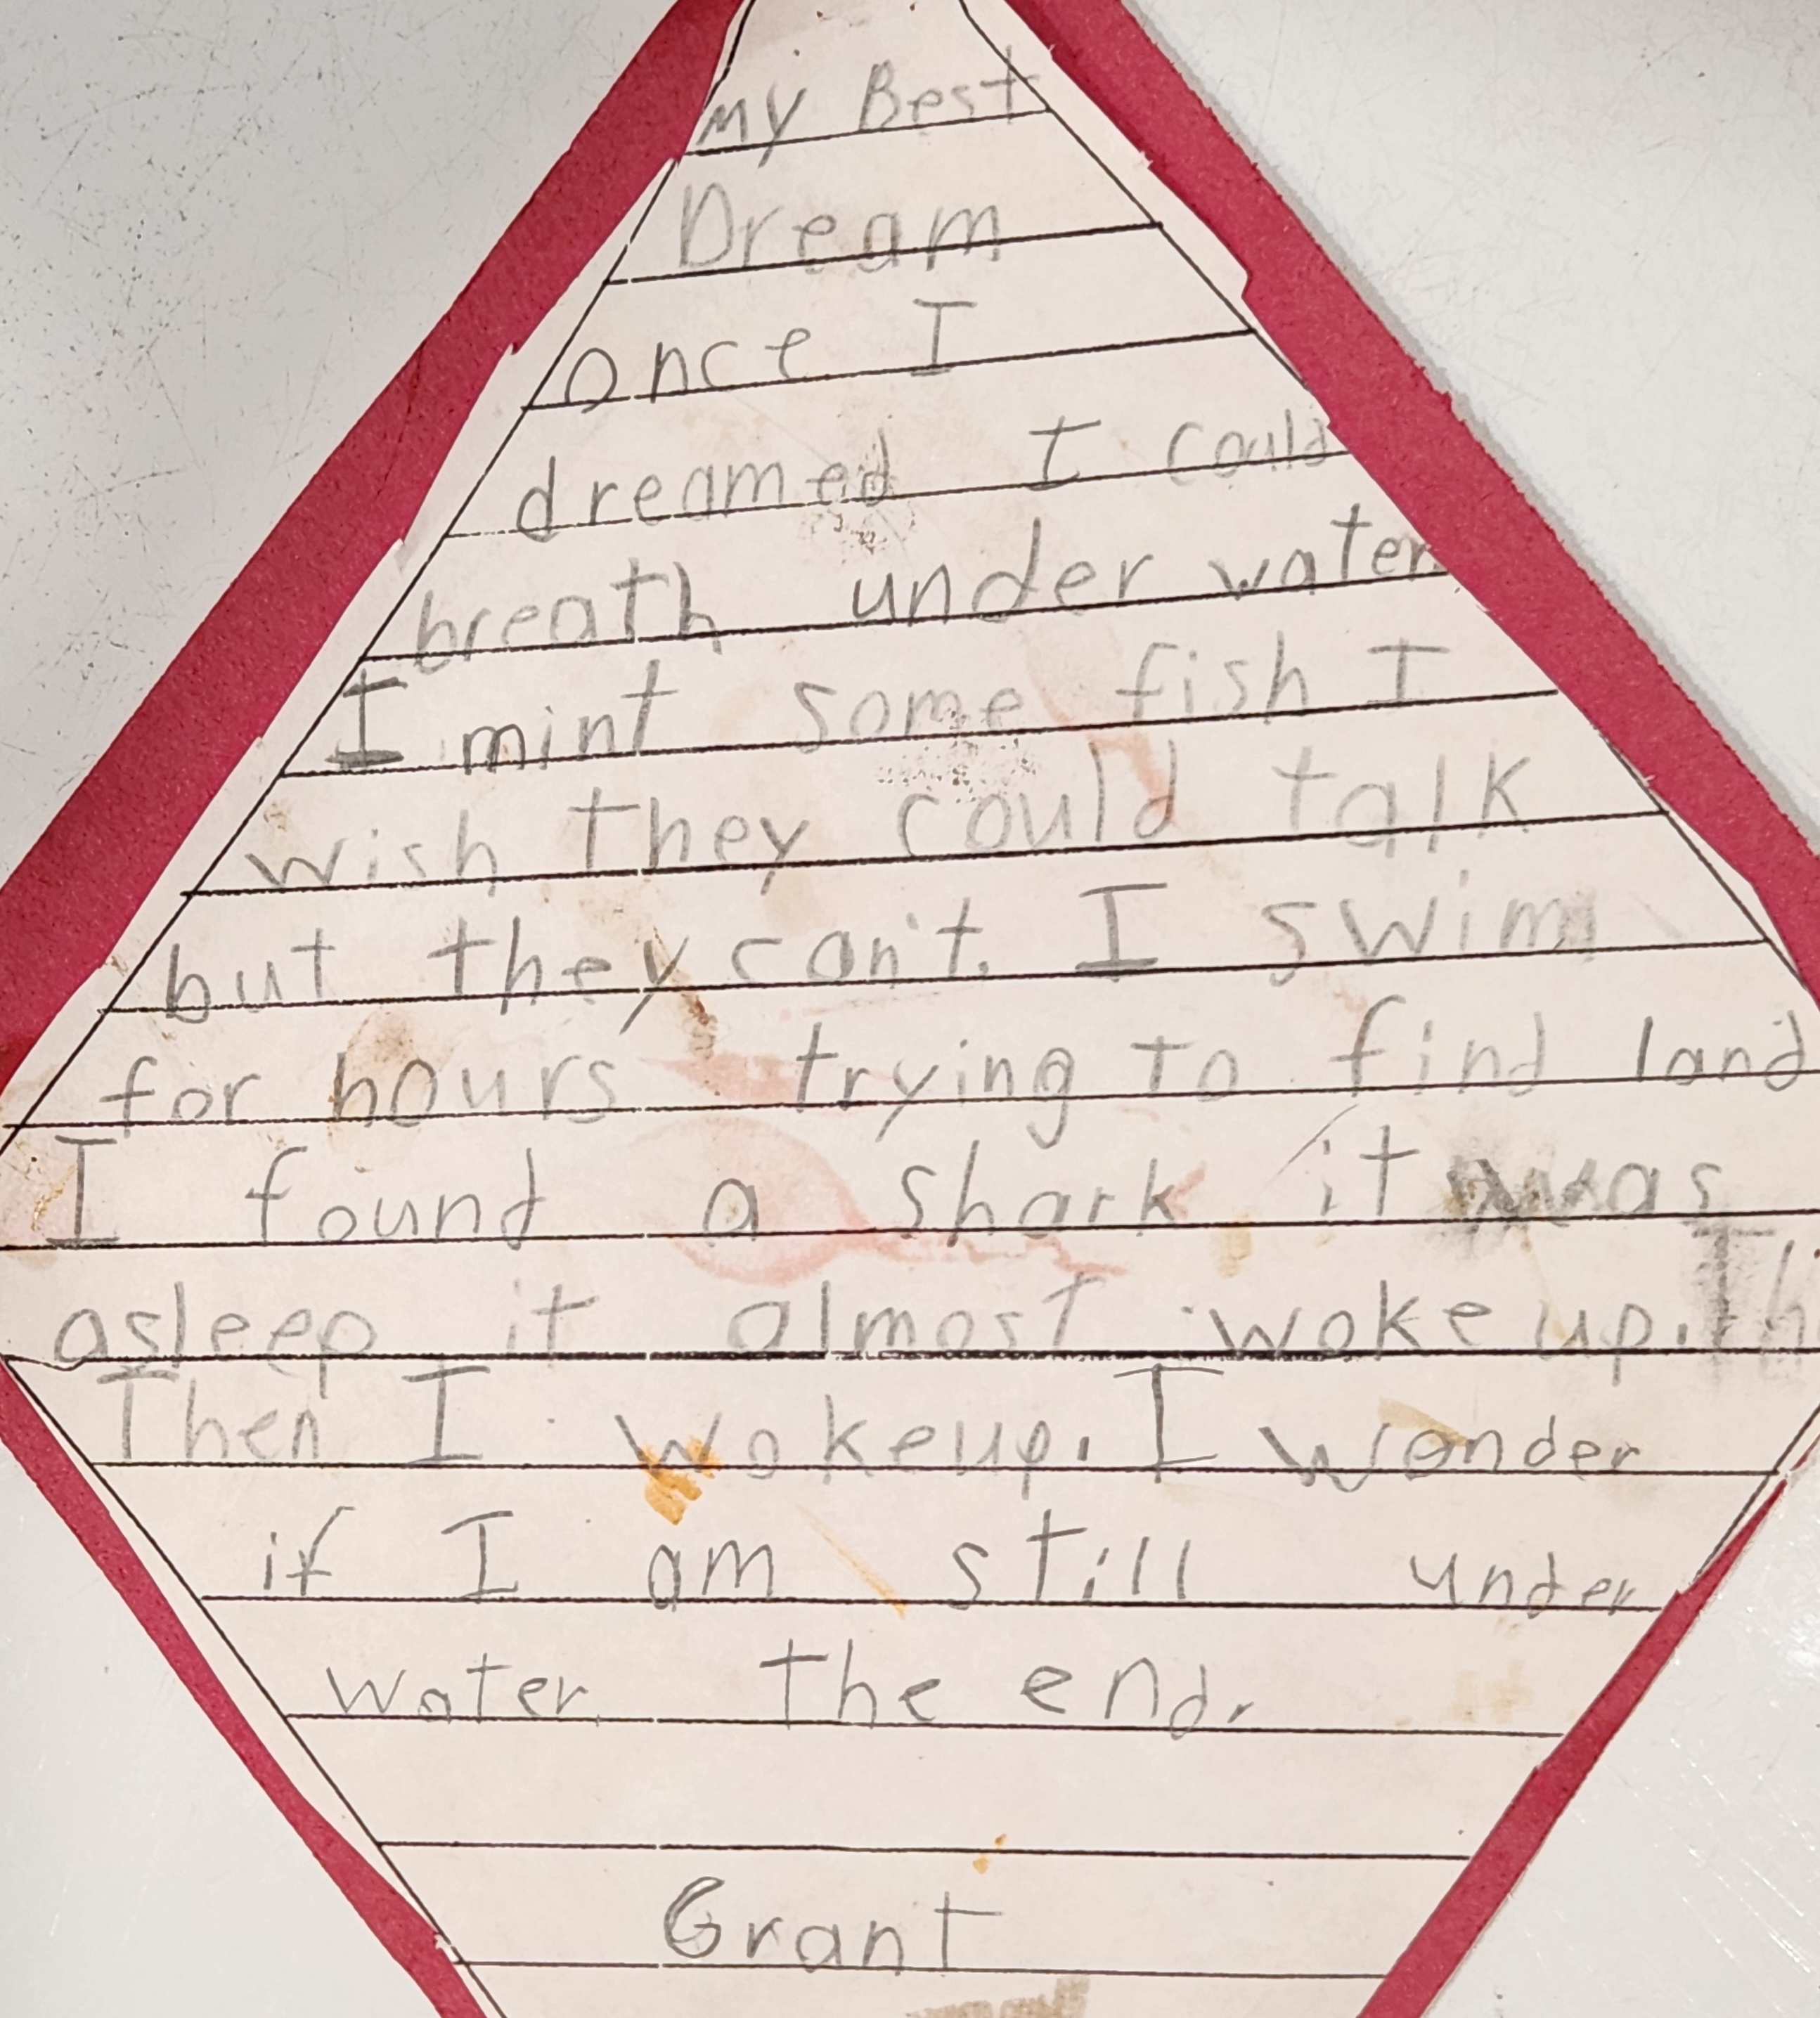 My Best
Dream
once I
dreamed I could
breath under water
I mint some fish I
wish they could talk
but they can't. I swim
for hours trying to find land
I found a shark it was
asleep it almost woke up.
Then I woke up. I wonder
if I am still under
water the end.
Grant